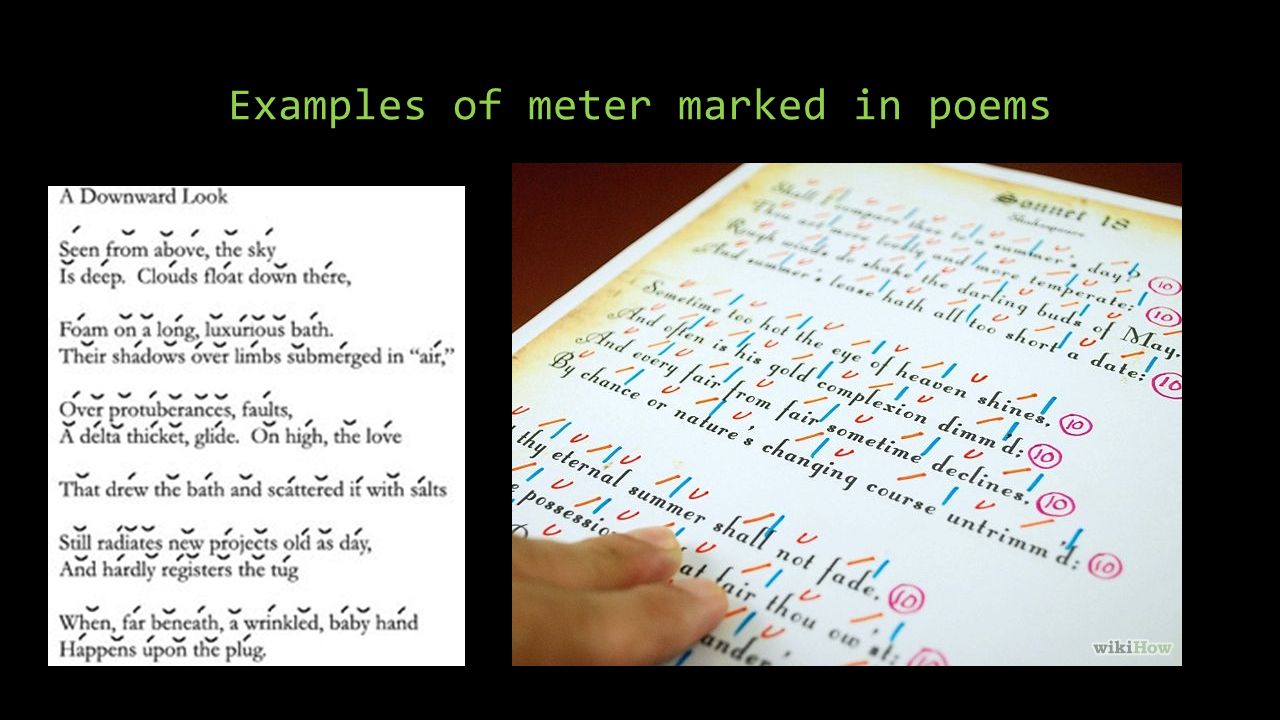 Examples of meter marked in poems
A Downward Look
Seen from above, the sky
Is deep. Clouds float down there,
Foam on a long, luxurious bath.
Their shadows over limbs submerged in “air,”
Over protuberances, faults,
A delta thicket, glide. On high, the love
That drew the bath and scattered it with salts
Still radiates new projects old as day,
And hardly registers the tug
When, far beneath, a wrinkled, baby hand
Happens upon the plug.
Sonnet 18
Shakespeare
Shall I compare thee to a summer's day? 10
Thou art more lovely and more temperate: 10
Rough winds do shake the darling buds of May,
And summer's lease hath all too short a date: 10
Sometime too hot the eye of heaven shines, 10
And often is his gold complexion dimm'd; 10
And every fair from fair sometime declines, 10
By chance or nature's changing course untrimm'd: 10
thy eternal summer shall not fade, 10
possession
at fair thou ow'st; 10
ander
wikiHow